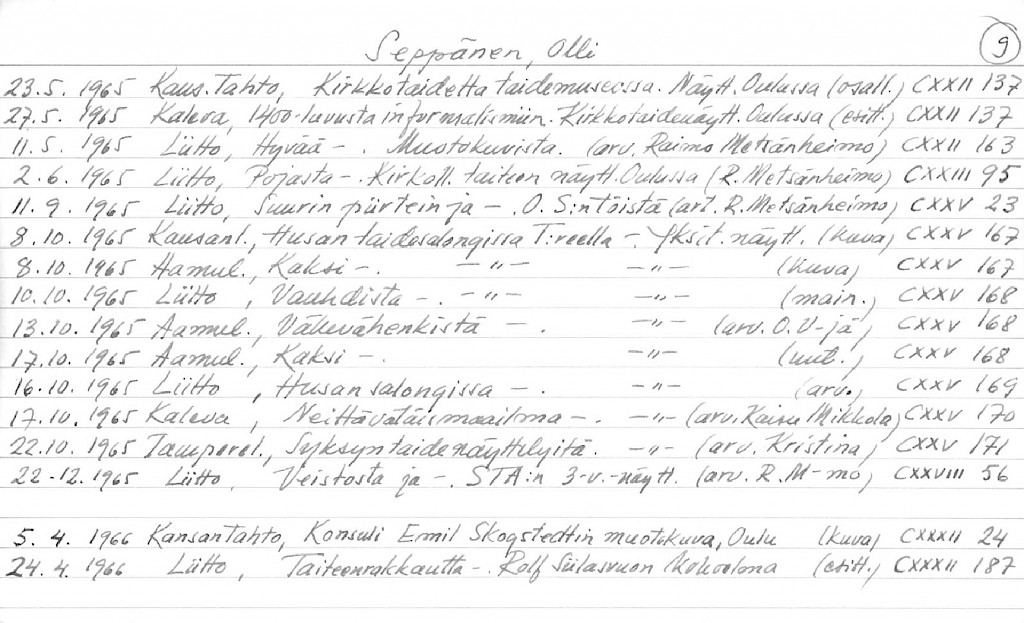 9
Seppänen, Olli
23.5. 1965 Kans.Tahto, Kirkkotaidetta taidemuseossa. Näytt. Oulussa (osall.) CXXII 137
27.5. 1965 Kaleva, 1400-luvusta informalismiin. Kirkkotaidenäytt. Oulussa (esitt.) CXXII 137
11.5. 1965 Liitto, Hyvää -. Muotokuvista. (arv. Raimo Metsänheimo) CXXII 163
2.6. 1965 Liitto, Pojasta -. Kirkoll. taiteen näytt. Oulussa (R. Metsänheimo) CXXIII 95
11.9. 1965 Liitto, Suurin piirtein ja -. O. S:n töistä (art. R. Metsänheimo) CXXV 23
8.10. 1965 Kansanl., Husan taidesalongissa T:reella -. Yksit. näytt. (kuva) CXXV 167
8.10. 1965 Aamul., Kaksi -. -"- -"- (kuva) CXXV 167
10.10. 1965 Liitto, Vauhdista -. -"- -"- (main.) CXXV 168
13.10. 1965 Aamul., Väkevähenkistä -. -"- (arv. O. V-jä) CXXV 168
17.10. 1965 Aamul., Kaksi -. -"- (uut.) CXXV 168
16.10. 1965 Liitto, Husan salongissa -. -"- (arv.) CXXV 169
17.10. 1965 Kaleva, maailma -. -"- (arv. Kaisu Mikkola) CXXV 170
22.10. 1965 Tamperel., Syksyn taidenäyttelyitä. -"- (arv. Kristina) CXXV 171
22-12. 1965 Liitto, Veistosta ja -. STA:n 3-v.-näytt. (arv. R. M-mo) CXXVIII 56
5.4. 1966 KansanTahto, Konsuli Emil Skogstedtin muotokuva, Oulu (kuva) CXXXII 24
24.4. 1966 Liitto, Taiteenrakkautta -. Rolf Siilasvuon kokoelma (esitt.) CXXXII 187